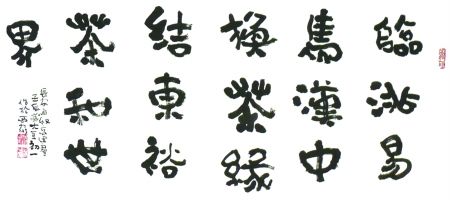 臨洮易
馬漢中
換茶緣
結東裕
茶和世
界